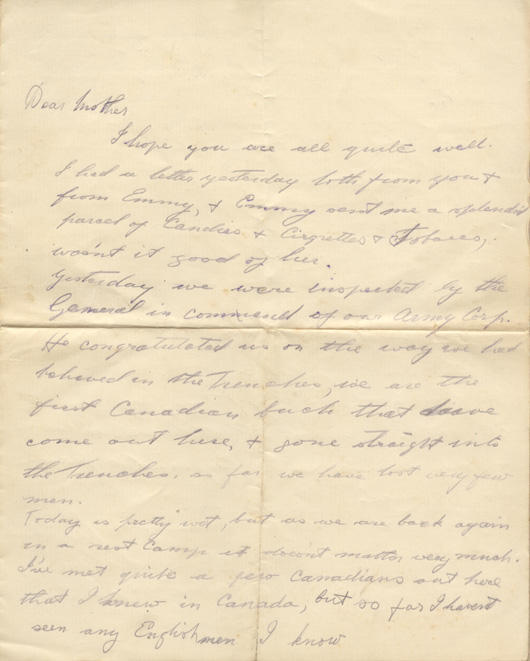 Dear Mother
I hope you are all quite well.
I had a letter yesterday both from you &
from Emmy, & Emmy sent me a splendid
parcel of Candies & Cigrettes & Tobacco,
wasn't it good of her.
Yesterday we were inspected by the
General in command of our Army Corp.
He congratulated us on the way we had
behaved in the Trenches, we are the
first Canadian that have
come out here, & gone straight into
the Trenches, so far we have lost very few
men.
Today is pretty wet, but as we are back again
in a rest Camp it doesn't matter very much.
I've met quite a few Canadians out here
that I knew in Canada, but so far I havent
seen any Englishmen I know